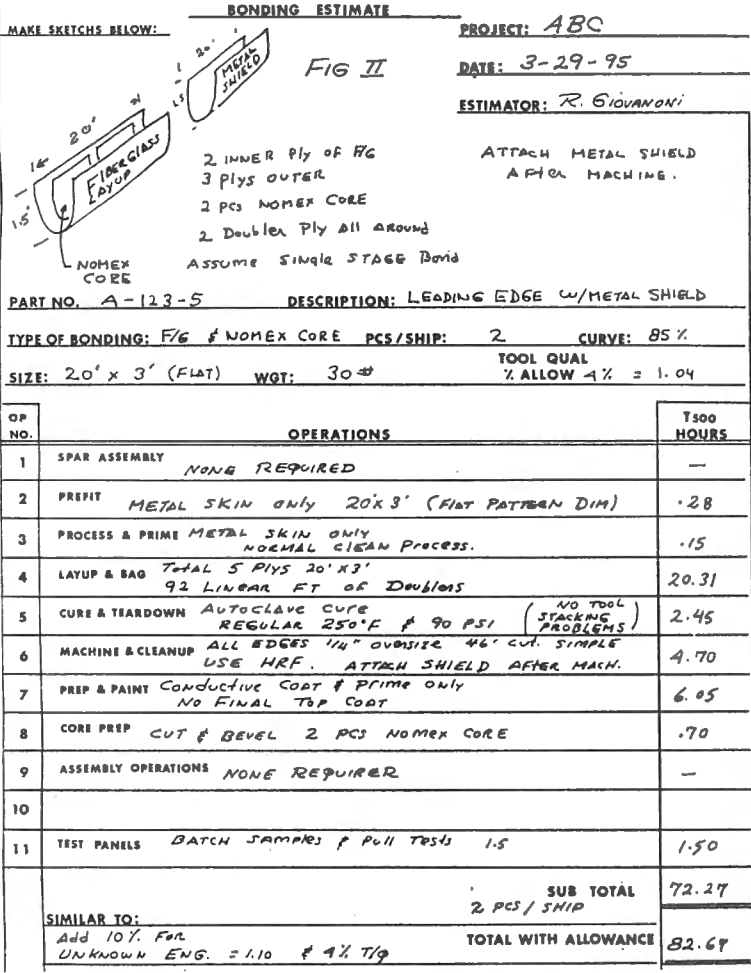 BONDING ESTIMATE
MAKE SKETCHS BELOW:
PROJECT: ABC
DATE: 3-29-95
ESTIMATOR: R. GIOVANONI
FIG II
20'
METAL SHIELD
1.5
16
20'
FIBERGLASS LAYUP
1.5'
NOMEX CORE
2 INNER Ply OF F/G
3 Plys OUTER
2 PCS NOMEX CORE
2 Doubler Ply All Around
ASSUME SINGLE STAGE Bond
ATTACH METAL SHIELD
AFTER MACHINE.
PART NO. A-123-5 DESCRIPTION: LEADING EDGE W/METAL SHIELD
TYPE OF BONDING: F/G & NOMEX CORE PCS/SHIP: 2 CURVE: 85%
SIZE: 20' x 3' (FLAT) WGT: 30# TOOL QUAL % ALLOW 4% = 1.04
OP NO. OPERATIONS T500 HOURS
1 SPAR ASSEMBLY NONE REQUIRED —
2 PREFIT METAL SKIN ONLY 20'x3' (FLAT PATTERN DIM) .28
3 PROCESS & PRIME METAL SKIN ONLY
NORMAL CLEAN Process. .15
4 LAYUP & BAG Total 5 Plys 20'x3'
92 LINEAR FT OF Doublers 20.31
5 CURE & TEARDOWN Autoclave Cure
REGULAR 250°F & 90 PSI (NO TOOL STACKING PROBLEMS) 2.45
6 MACHINE & CLEANUP ALL EDGES 1/4" OVERSIZE 46' CUT. SIMPLE
USE HRF. ATTACH SHIELD AFTER MACH. 4.70
7 PREP & PAINT Conductive Coat & Prime only
NO FINAL TOP COAT 6.05
8 CORE PREP CUT & BEVEL 2 PCS NOMEX CORE .70
9 ASSEMBLY OPERATIONS NONE REQUIRER —
10
11 TEST PANELS BATCH SAMPLES & Pull Tests 1.5 1.50
SUB TOTAL 72.27
2 PCS / SHIP
SIMILAR TO:
Add 10% For
UNKNOWN ENG. = 1.10 & 4% T/Q
TOTAL WITH ALLOWANCE 82.67